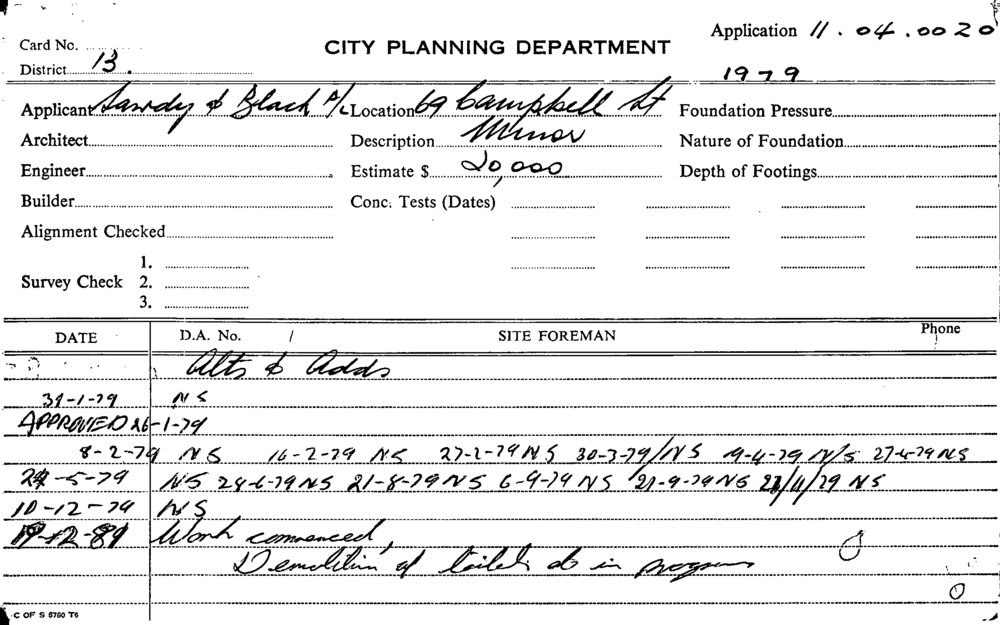 Card No. Application 11.04.0020
CITY PLANNING DEPARTMENT
District 13. 1979
Applicant & Black P/L Location 69 Campbell St Foundation Pressure
Architect Description Minor Nature of Foundation
Engineer Estimate $ 20,000 Depth of Footings
Builder Conc. Tests (Dates)
Alignment Checked
1.
Survey Check 2.
3.
DATE D.A. No. / SITE FOREMAN Phone
Alts & Adds
31-1-79 NS
APPROVED 26-1-79
8-2-79 NS 16-2-79 NS 27-2-79 NS 30-3-79/NS 9-4-79 N/S 27-4-79 NS
-5-79 NS 24-6-79 NS 21-8-79 NS 6-9-79 NS 21-9-79 NS /11/79 NS
10-12-79 NS
Work commenced,
Demolition of toilets in progress
C OF S 5760 T6